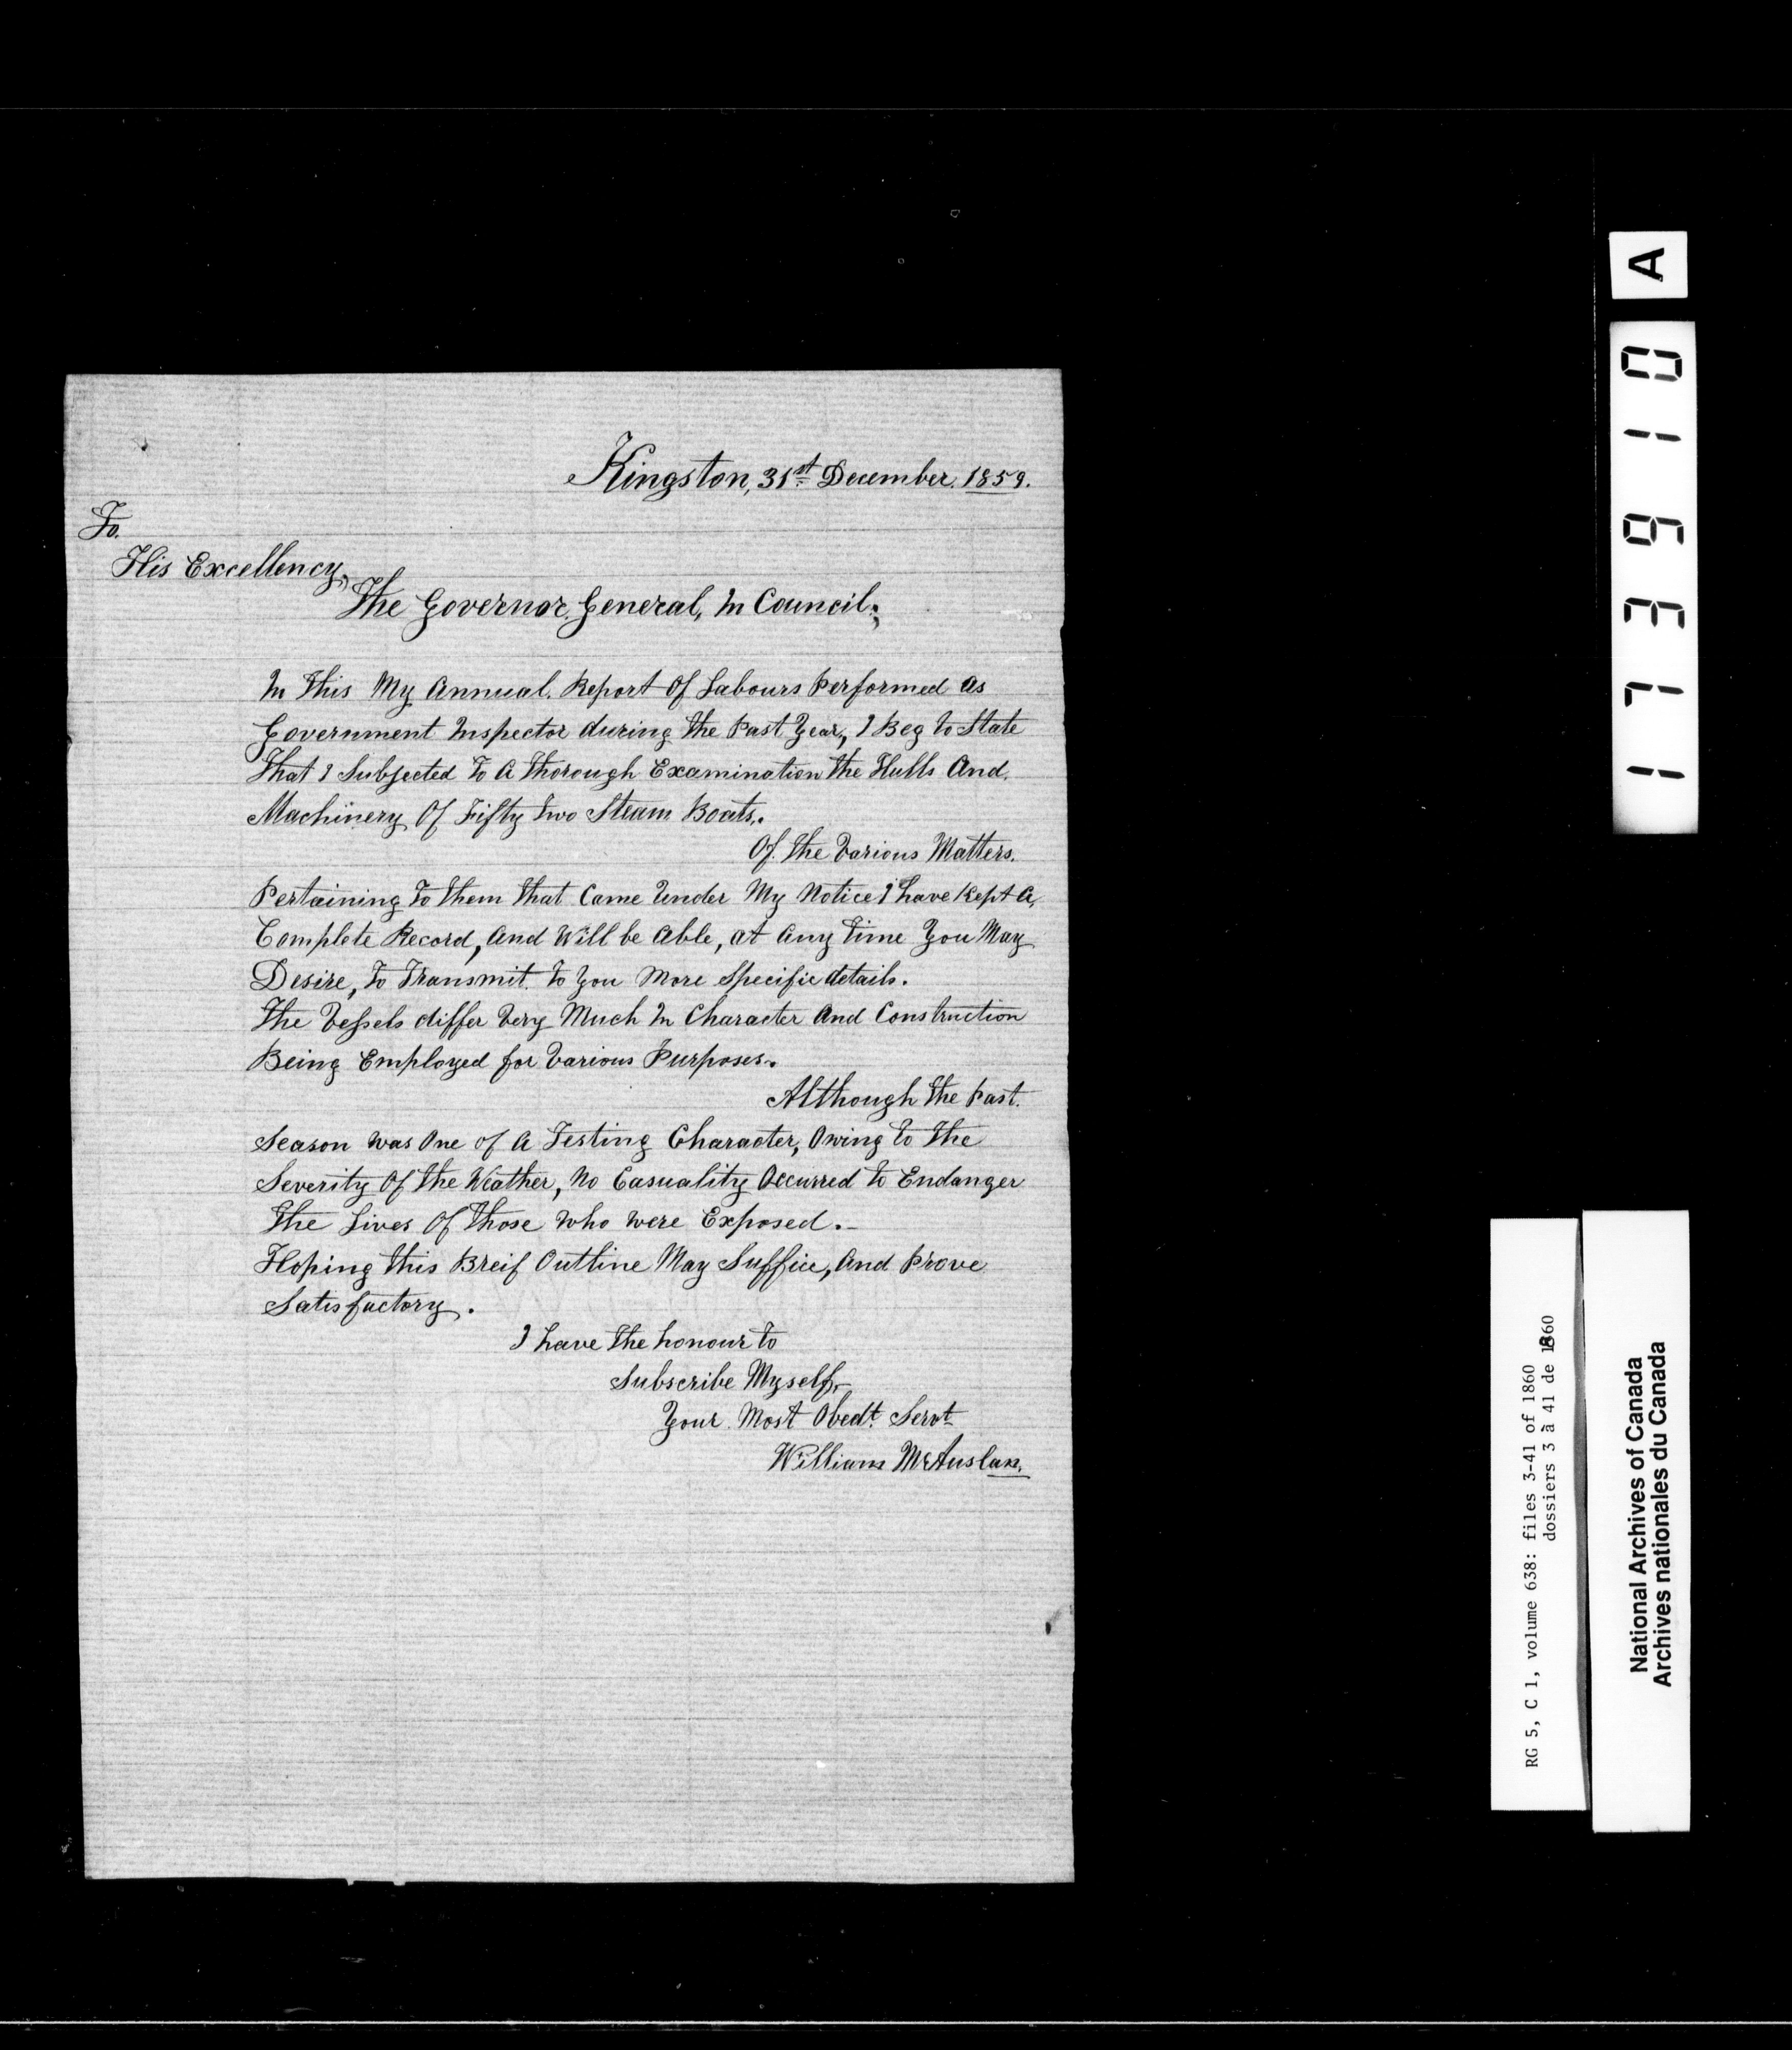 Kingston, 31st December. 1859.
To.
His Excellency,
The Governor General, In Council;
In This My Annual. Report Of Labours Performed As
Government Inspector during the Past Year, I Beg to State
That I Subjected To A Thorough Examination The Hulls And,
Machinery Of Fifty Two Steam Boats,.
Of The Various Matters.
Pertaining To Them That Came Under My Notice I have Kept A,
Complete Record, And Will be Able, at Any Time You May
Desire, To Transmit. To You More Specific details.
The Vessels differ Very Much In Character And Construction
Being Employed for Various Purposes.
Although The Past.
Season was One of A Testing Character, Owing to The
Severity Of The Weather, No Casuality Occurred to Endanger
The Lives Of Those Who Were Exposed.-
Hoping This Breif Outline May Suffice, And Prove
Satisfactory.
I have The honour To
Subscribe Myself,-
Your. Most Obedt. Servt
William McAuslan.
A
173910
RG 5, C 1, volume 638: files 3-41 of 1860
dossiers 3 à 41 de 1860
National Archives of Canada
Archives nationales du Canada